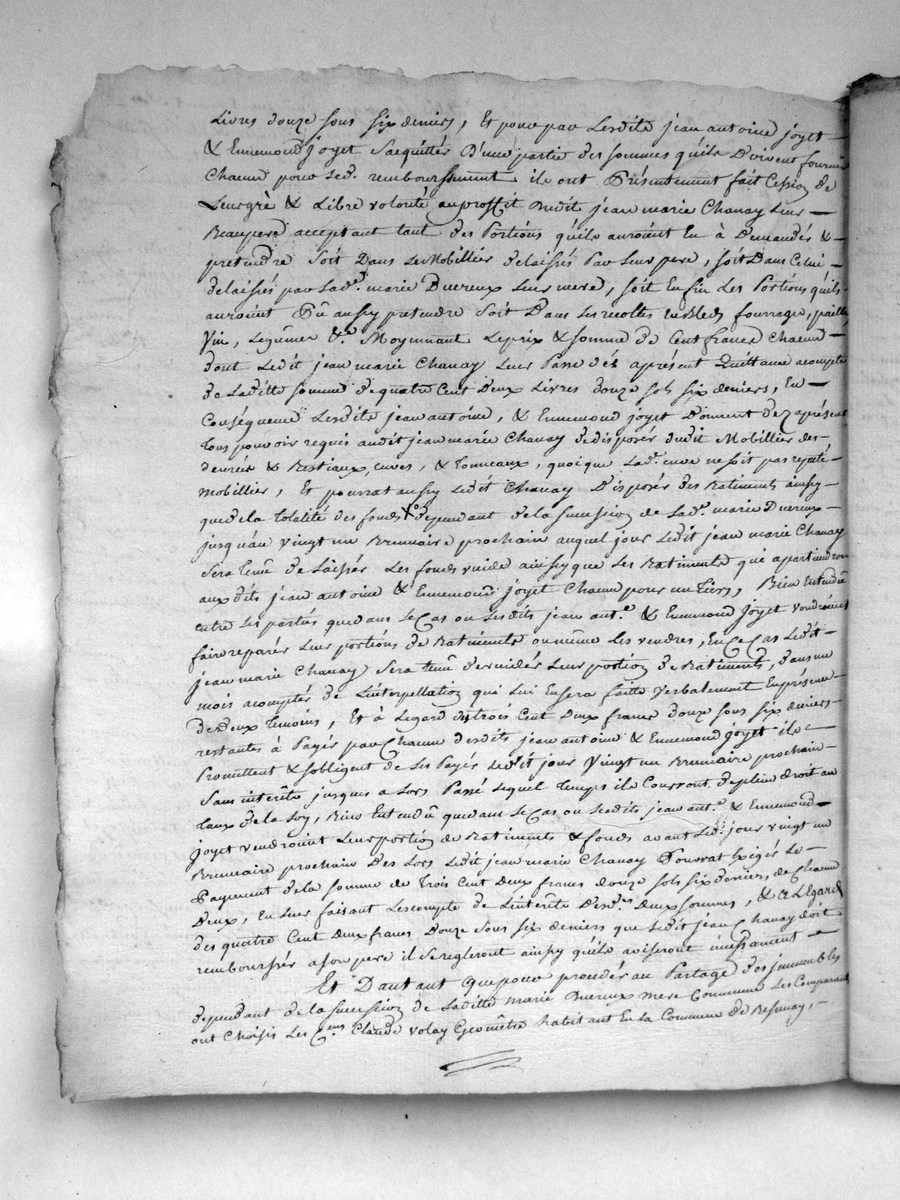 Livres douze sous six deniers, Et pour par Lesdits jean antoine joyet
& Ennemond joyet Saequittér D'une partie des sommes qu'ils Doivent fournir
Chacun pour led. remboursement ils ont Présentement fait Cession de
Leur grè & Libre volonté au proffit dudit jean marie Chanay Leur
Beaupere acceptant tant des Portions qu'ils auroient Eu à Demandés &
pretendre Soit Dans Le Mobillier delaissés Par Leur pere, soit Dans Celui
delaissés par Lad.e marie Ducreux Leur mere, soit Enfin Les Portions qu'ils
auroient Pû aussy pretendre Soit Dans Les recoltes en bled, fourrage, pailles
Vin, Legûmes &a. Moyennant Le prix & somme de Cent francs Chacun
dont Ledit jean marie Chanay Leur Passe dés apresent Quittance acompte
de Laditte somme de quatre Cent Deux Livres douze sols six deniers, En
Conséquence Lesdits jean antoine, & Ennemond joyet Donnent dez apresent
tous pouvoir requis audit jean marie Chanay de disposér dudit Mobillier des
denrées & Bestiaux, cuves, & tonneaux, quoique Lad.e cuve ne soit pas reputé
mobillier, Et pourrat aussy Ledit Chanay Disposér des Batiments ainsy
que de la totalité des fonds dependant de la succession de Lad.e marie Ducreux
jusqu'au vingt un Brumaire prochain auquel jour Ledit jean marie Chanay
Sera tenû de Laissér Les fonds vuide ainsy que Les Batiments qui apartiendront
aux dits jean antoine & Ennemond joyet Chacun pour un tiers, Bien Entendû
entre Les parties que dans Le Cas ou Lesdits jean ant.e & Ennemond joyet voudroient
faire reparér Leur portions de Batiments ou même Les vendres, En Ce Cas Ledit
jean marie Chanay Sera tenû de vuidér Leur portion de Batiments, dans un
mois acomptér de L'interpellation qui Lui En sera faitte verbalement En présence
de deux temoins, Et à Legard des trois Cent Deux francs Douze sous six deniers
restantes à Payér par Chacun desdits jean antoine & Ennemond joyet ils
Promettent & s'obligent de Les Payér Ledit jour Vingt un Brumaire prochain
Sans interêts jusques a Lors Passé Lequel temps ils Courront de plein droit au
taux de la Loy, Bien Entendû que dans Le Cas ou Lesdits jean ant.e & Ennemond
joyet vendroient Leur portion de Batiments & fonds avant Led. jour vingt un
Brumaire prochain Des Lors Ledit jean marie Chanay Pourrat Exigér Le
Payment de la somme de Trois Cent Deux francs douze sols six deniers de Chacun
D'eux, En Leur faisant Lescompte de L'interêts Desd.es Deux sommes, & a L'Egard
des quatre Cent Deux francs Douze sous six deniers que Ledit jean Chanay doit
rembourssér a son pere il Se regleront ainsy qu'ils aviseront incessament
Et D'autant Que pour proceder au Partage des jmmeubles
dependant de la succession de Laditte Marie Ducreux mere Commune Les Comparants
ont Choisis Les C.ens Claude volay Geomêtre habitant En la Commune de Bessenay,